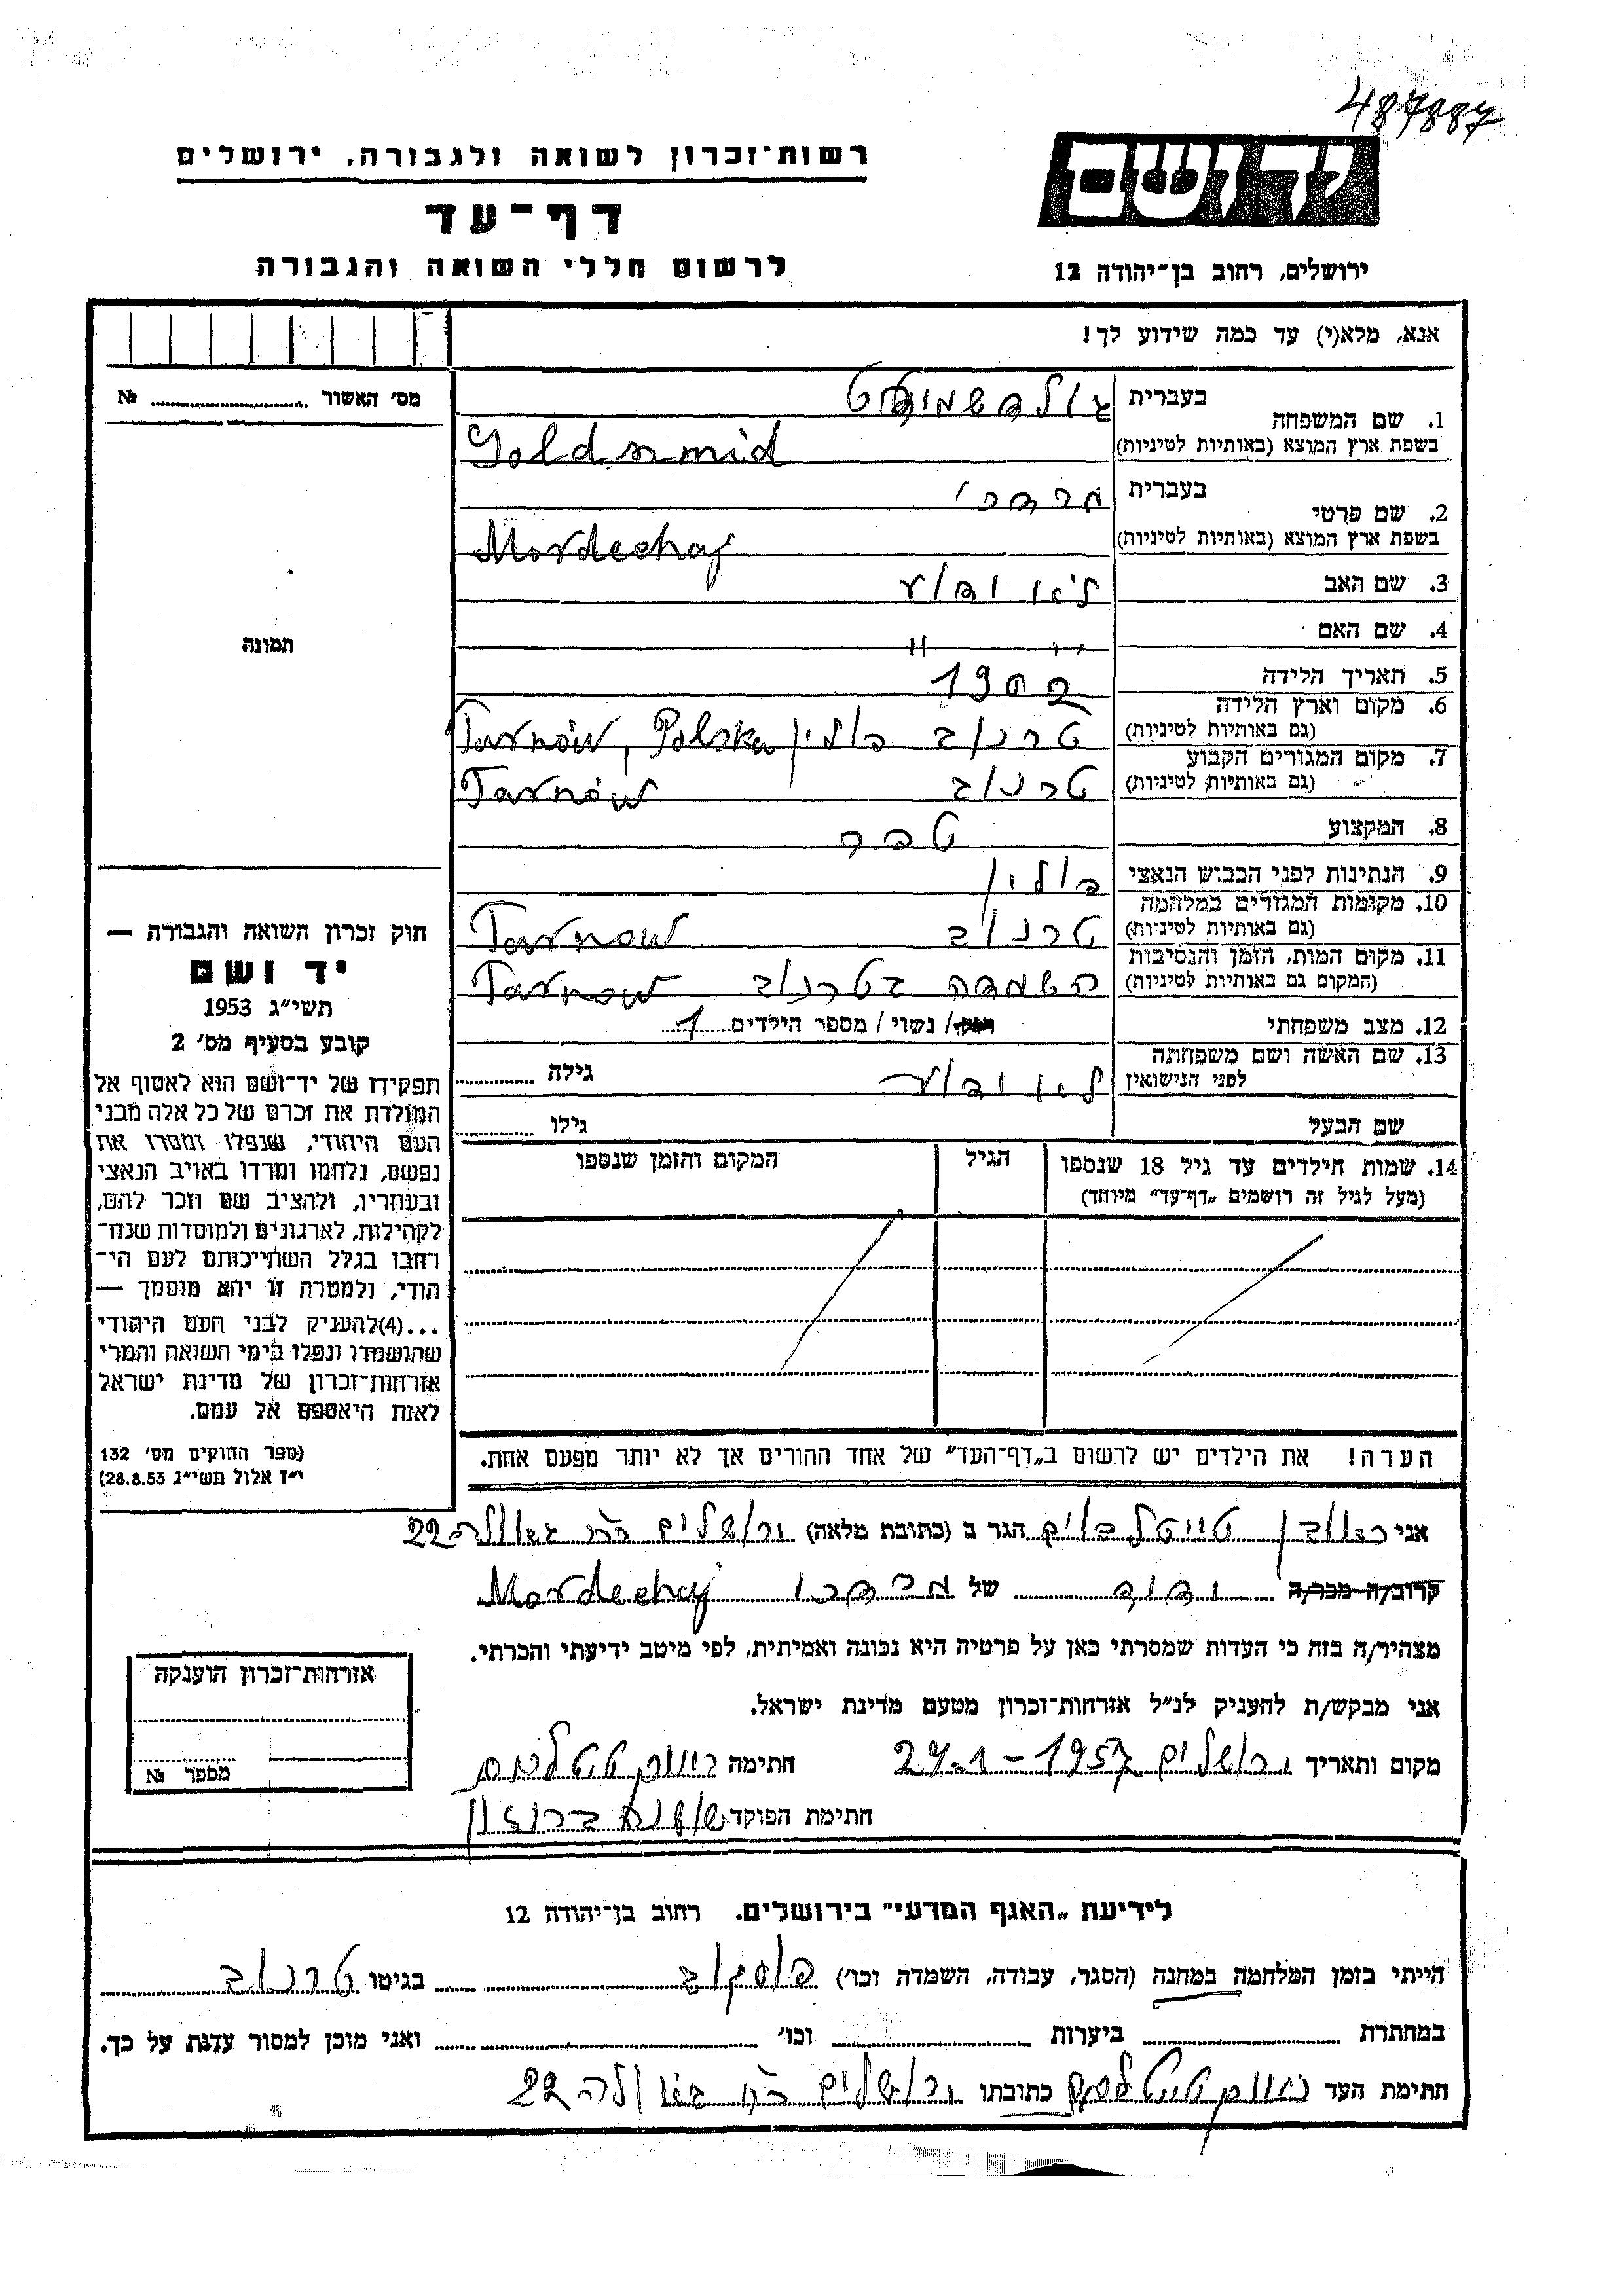 487887
יד ושם
רשות־זכרון לשואה ולגבורה, ירושלים
דף־עד
לרשום חללי השואה והגבורה
ירושלים, רחוב בן־יהודה 12
אנא, מלא(י) עד כמה שידוע לך!
מס׳ האשור № ........
1. שם המשפחה בעברית גולדשמידט
בשפת ארץ המוצא (באותיות לטיניות) Goldsmid
2. שם פרטי בעברית מרדכי
בשפת ארץ המוצא (באותיות לטיניות) Mordechaj
3. שם האב לא ידוע
4. שם האם " "
5. תאריך הלידה 1902
6. מקום וארץ הלידה (גם באותיות לטיניות) טרנוב פולין Tarnów, Polska
7. מקום המגורים הקבוע (גם באותיות לטיניות) טרנוב Tarnów
8. המקצוע
9. הנתינות לפני הכבוש הנאצי פולין
10. מקומות המגורים במלחמה (גם באותיות לטיניות) טרנוב Tarnow
11. מקום המות, הזמן והנסיבות (המקום גם באותיות לטיניות) השמדה בטרנוב Tarnow
12. מצב משפחתי רווק/ נשוי/ מספר הילדים 1
13. שם האשה ושם משפחתה לפני הנישואין לא ידוע גילה ........
שם הבעל גילו ........
14. שמות הילדים עד גיל 18 שנספו הגיל המקום והזמן שנספו
(מעל לגיל זה רושמים „דף־עד״ מיוחד)
הערה! את הילדים יש לרשום ב„דף־העד״ של אחד ההורים אך לא יותר מפעם אחת.
תמונה
חוק זכרון השואה והגבורה —
יד ושם
תשי״ג 1953
קובע בסעיף מס׳ 2
תפקידו של יד־ושם הוא לאסוף אל
המולדת את זכרם של כל אלה מבני
העם היהודי, שנפלו ומסרו את
נפשם, נלחמו ומרדו באויב הנאצי
ובעוזריו, ולהציב שם וזכר להם,
לקהילות, לארגונים ולמוסדות שנח־
רחבו בגלל השתייכותם לעם הי־
הודי, ולמטרה זו יהא מוסמך —
...(4)להעניק לבני העם היהודי
שהושמדו ונפלו בימי השואה והמרי
אזרחות־זכרון של מדינת ישראל
לאות היאספם אל עמם.
(ספר החוקים מס׳ 132
י״ז אלול תשי״ג 28.8.53)
אני ראובן טייטלבוים הגר ב (כתובת מלאה) ירושלים רח׳ גאולה 22
קרוב/ה מכר/ה ידיד של מרדכי Mordechaj
מצהיר/ה בזה כי העדות שמסרתי כאן על פרטיה היא נכונה ואמיתית, לפי מיטב ידיעתי והכרתי.
אני מבקש/ת להעניק לנ״ל אזרחות־זכרון מטעם מדינת ישראל.
מקום ותאריך ירושלים 29.1-1957 חתימה
חתימת הפוקד
אזרחות־זכרון הוענקה
מספר №
לידיעת „האגף המדעי״ בירושלים, רחוב בן־יהודה 12
הייתי בזמן המלחמה במחנה (הסגר, עבודה, השמדה וכו׳) בגיטו טרנוב
במחתרת ........ ביערות ........ וכו׳ ........ ואני מוכן למסור עדות על כך.
חתימת העד כתובתו ירושלים רח׳ גאולה 22